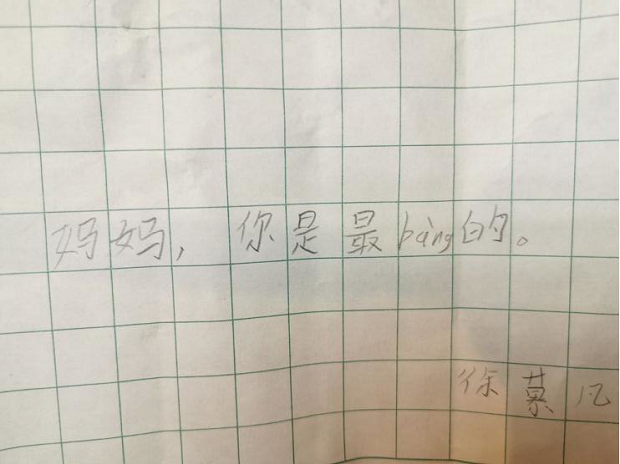 妈妈，你是最bàng的。
徐慕凡